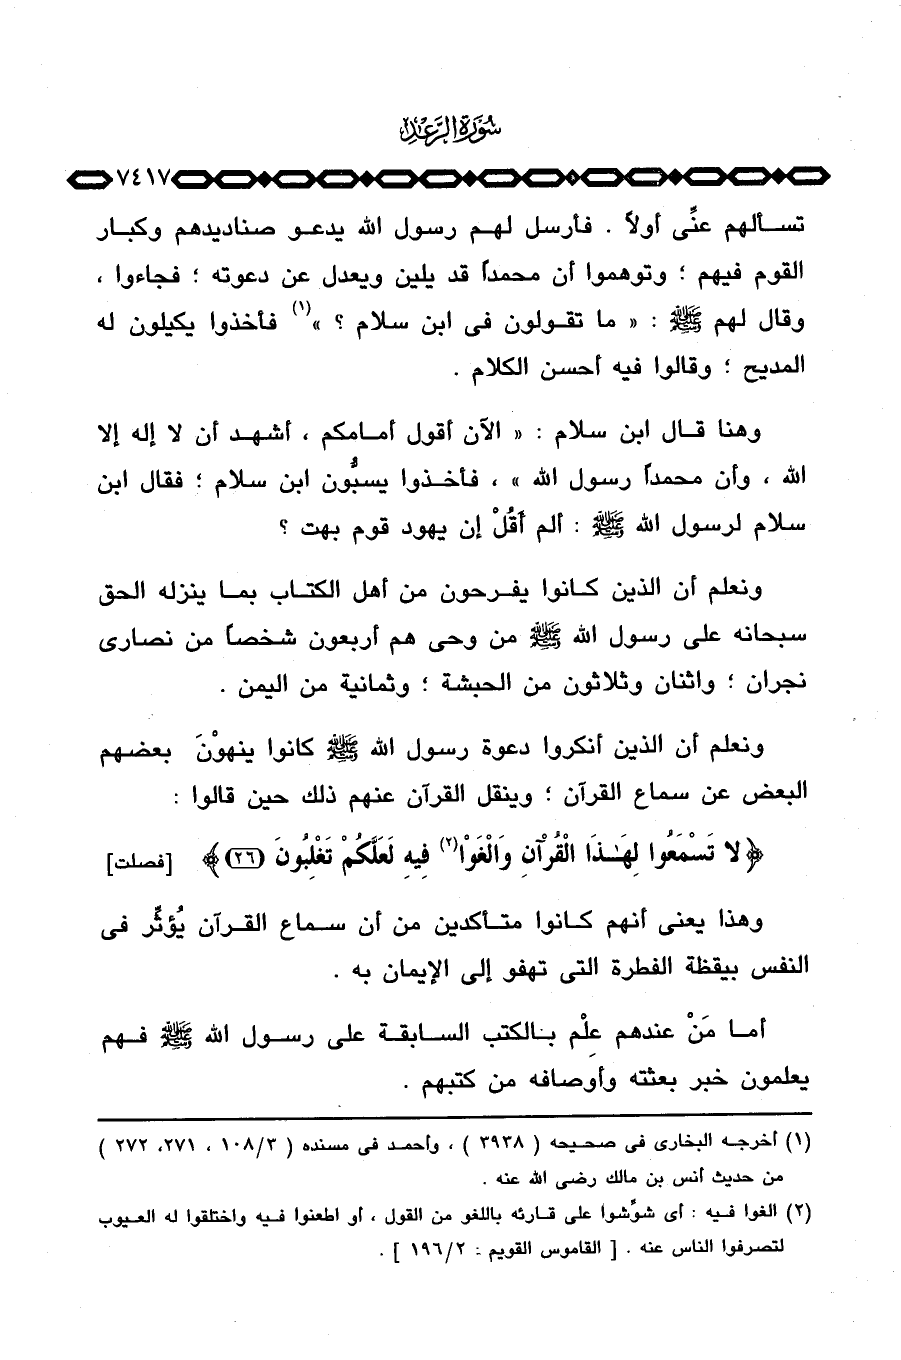 سورة الرعد
٧٤١٧
تسألهم عنِّى أولاً . فأرسل لهم رسول الله يدعو صناديدهم وكبار
القوم فيهم ؛ وتوهموا أن محمداً قد يلين ويعدل عن دعوته ؛ فجاءوا ،
وقال لهم ﷺ : « ما تقولون فى ابن سلام ؟ »(١) فأخذوا يكيلون له
المديح ؛ وقالوا فيه أحسن الكلام .
وهنا قال ابن سلام : « الآن أقول أمامكم ، أشهد أن لا إله إلا
الله ، وأن محمداً رسول الله » ، فأخذوا يسبُّون ابن سلام ؛ فقال ابن
سلام لرسول الله ﷺ : ألم أَقُلْ إن يهود قوم بهت ؟
ونعلم أن الذين كانوا يفرحون من أهل الكتاب بما ينزله الحق
سبحانه على رسول الله ﷺ من وحى هم أربعون شخصاً من نصارى
نجران ؛ واثنان وثلاثون من الحبشة ؛ وثمانية من اليمن .
ونعلم أن الذين أنكروا دعوة رسول الله ﷺ كانوا ينهوْنَ بعضهم
البعض عن سماع القرآن ؛ وينقل القرآن عنهم ذلك حين قالوا :
﴿ لا تَسْمَعُوا لِهَـٰذَا الْقُرْآنِ وَالْغَوْا(٢) فِيهِ لَعَلَّكُمْ تَغْلِبُونَ (٢٦) ﴾ [فصلت]
وهذا يعنى أنهم كانوا متأكدين من أن سماع القرآن يُؤثِّر فى
النفس بيقظة الفطرة التى تهفو إلى الإيمان به .
أما مَنْ عندهم عِلْم بالكتب السابقة على رسول الله ﷺ فهم
يعلمون خبر بعثته وأوصافه من كتبهم .
(١) أخرجه البخارى فى صحيحه ( ٣٩٣٨ ) ، وأحمد فى مسنده ( ١٠٨/٣ ، ٢٧١، ٢٧٢ )
من حديث أنس بن مالك رضى الله عنه .
(٢) الغوا فيه : أى شوِّشوا على قارئه باللغو من القول ، أو اطعنوا فيه واختلقوا له العيوب
لتصرفوا الناس عنه . [ القاموس القويم : ١٩٦/٢ ] .